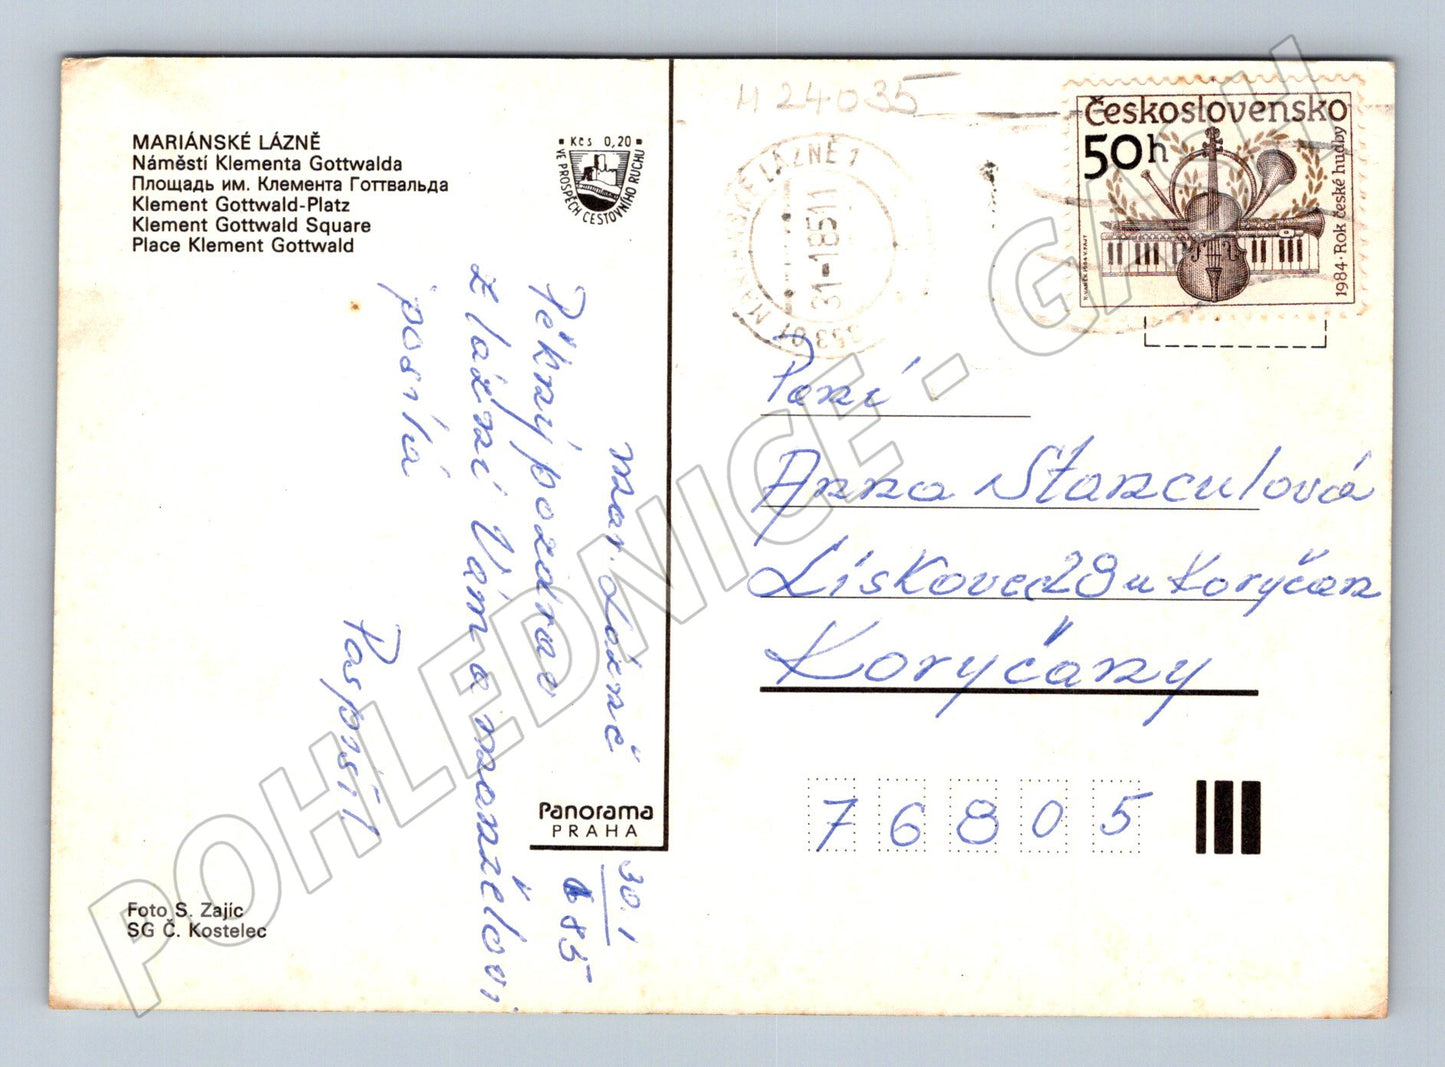 MARIÁNSKÉ LÁZNĚ
Náměstí Klementa Gottwalda
Площадь им. Клемента Готтвальда
Klement Gottwald-Platz
Klement Gottwald Square
Place Klement Gottwald
Kčs 0,20
VE PROSPĚCH CESTOVNÍHO RUCHU
M 24035
MARIÁNSKÉ LÁZNĚ 1
31-1.85-11
353 01
Československo
50h
1984 · Rok české hudby
mar. Lázně
30.1
85
Pěkný pozdrav
z lázní Vám a manželovi
posílá
Pospíšil
Paní
Anna Stanculová
Lískovec 28 u Koryčan
Koryčany
76805
Panorama
PRAHA
Foto S. Zajíc
SG Č. Kostelec
POHLEDNICE - GASH